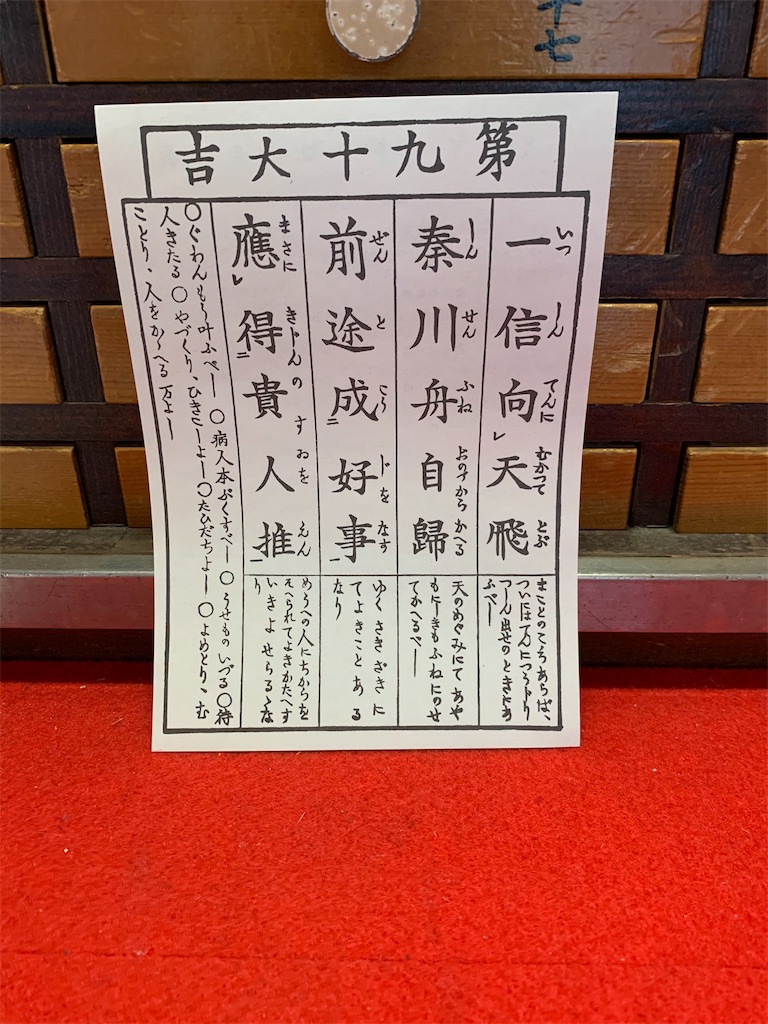 十七
第九十大吉
一信向天飛
いつ しん てんに むかつて とぶ
まことのこゝろあらば、
ついにはてんにつうじり
つしん出せのときにあ
ふべし
秦川舟自歸
しん せん ふね おのずから かへる
天のめぐみにてあや
もにしきもふねにのせ
てかへるべし
前途成二好事一
ぜん と こう じを なす
ゆくさきざきに
てよきことある
なり
應レ得二貴人推一
まさに きじんの すゐを えん
めうへの人にちからを
そへられてよきかたへす
いきよせらるゝな
り
○ぐわんもう叶ふべし ○病人本ぷくすべし ○うせものいづる○待
人きたる ○やづくり、ひきこしよし○たびだちよし ○よめとり、む
ことり、人をかゝへる万よし